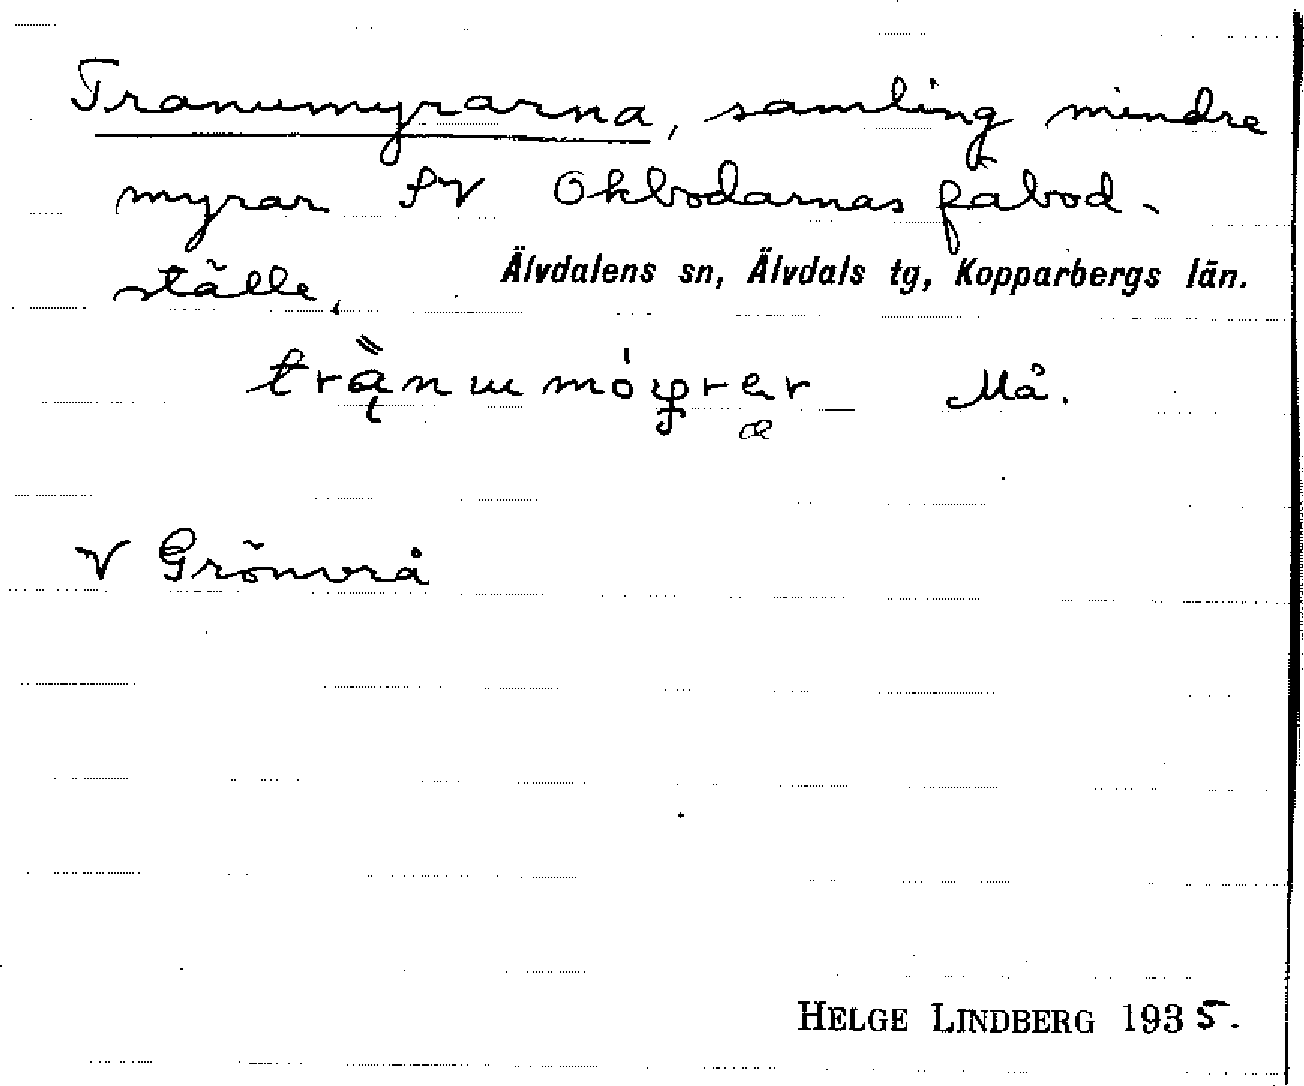 Tranumyrarna, samling mindre
myrar SV Okbodarnas fäbod-
ställe.
Älvdalens sn, Älvdals tg, Kopparbergs län.
Må.
V Grönvrå
HELGE LINDBERG 1935.